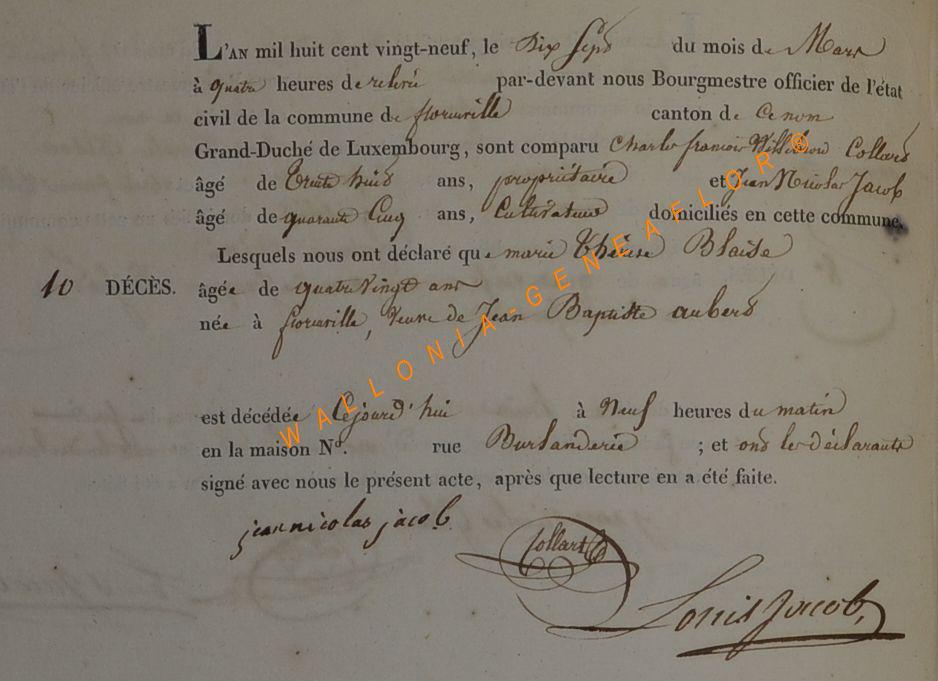 L'AN mil huit cent vingt-neuf, le Dix Sept du mois de Mars
à quatre heures de relevée par-devant nous Bourgmestre officier de l'état
civil de la commune de florenville canton de
Grand-Duché de Luxembourg, sont comparu Charles francois Collard
âgé de trente huit ans, propriétaire et Jean Nicolas Jacob
âgé de quarante Cinq ans, Cultivateur domiciliés en cette commune,
Lesquels nous ont déclaré que marie thérèse Blaise
10 DÉCÈS. âgée de quatre Vingt ans
née à florenville, Veuve de Jean Baptiste aubert
est décédée Cejourd'hui à Neuf heures du matin
en la maison N°. rue ; et ont les déclarants
signé avec nous le présent acte, après que lecture en a été faite.
jean nicolas jacob
Collart
Louis Jacob,
WALLONIA-GENEAFLOR®